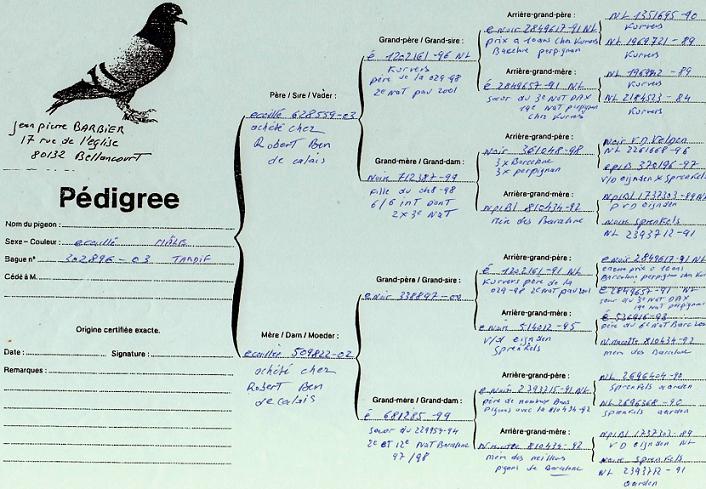 jean pierre BARBIER
17 rue de l'église
80132 Bellancourt
Pédigree
Nom du pigeon :
Sexe - Couleur : ecaillé MÂLE
Bague n° 302896 - 03 TARDIF
Cédé à M.
Origine certifiée exacte.
Date : Signature :
Remarques :
Père / Sire / Vader :
ecaillé 628559-03
achété chez
Robert Ben
de calais
Mère / Dam / Moeder :
ecaillée 509822-02
achété chez
Robert Ben
de calais
Grand-père / Grand-sire :
é 1202161-96 NL
Kurvers
père de la 029-98
2e NAT pau 2001
Grand-mère / Grand-dam :
Noire 712387-99
fille du 068-98
6/6 inT DonT
2 x 3e NAT
Grand-père / Grand-sire :
e Noir 338897-00
Grand-mère / Grand-dam :
é 681285-99
soeur du 229959-94
2e ET 12e NAT Barcelone
97/98
Arrière-grand-père :
e Noir 2849617-91 NL
prix a 10ans chez Kurvers
Barcelone perpignan
Arrière-grand-mère :
é 2849657-91 NL
soeur du 3e NAT DAX
19e NAT perpignan
chez Kurvers
Arrière-grand-père :
Noir 361048-98
3 x Barcelone
3 x perpignan
Arrière-grand-mère :
NpiBl 810434-92
mère des Barcelone
Arrière-grand-père :
é 1202161-91 NL
Kurvers père de la
029-98 2e NAT pau 2001
Arrière-grand-mère :
e Noir 514012-95
v/d eijnden
Sprenkels
Arrière-grand-père :
e Noir 2393215-91 NL
père de nombreux Bons
Pigeons avec la 810434-92
Arrière-grand-mère :
810434-92
mère des meilleurs
pigeons de Barcelone
NL 1351695-90
Kurvers
NL 1969721-89
Kurvers
NL 196942-89
Kurvers
NL 2184523-84
Kurvers
Noir V.D. Velpen
NL 2261668-96
epiB 370196-97
V/D eijnden x Sprenkels
NpiBl 1737303-89 NL
V D eijnden
Noire Sprenkels
NL 2393712-91
e Noir 2849617-91 NL
encore prix a 10ans
Barcelone perpignan chez
é 2849657-91 NL
soeur du 3e NAT DAX
19e NAT perpignan
é 536916-93
père du 6e NAT Barc
810434-92
mère des Barcelone
NL 2696404-90
Sprenkels aarden
NL 2696368-90
Sprenkels aarden
NpiBl 1737303-89
V D eijnden NL
Noire Sprenkels
NL 2393712-91
aarden